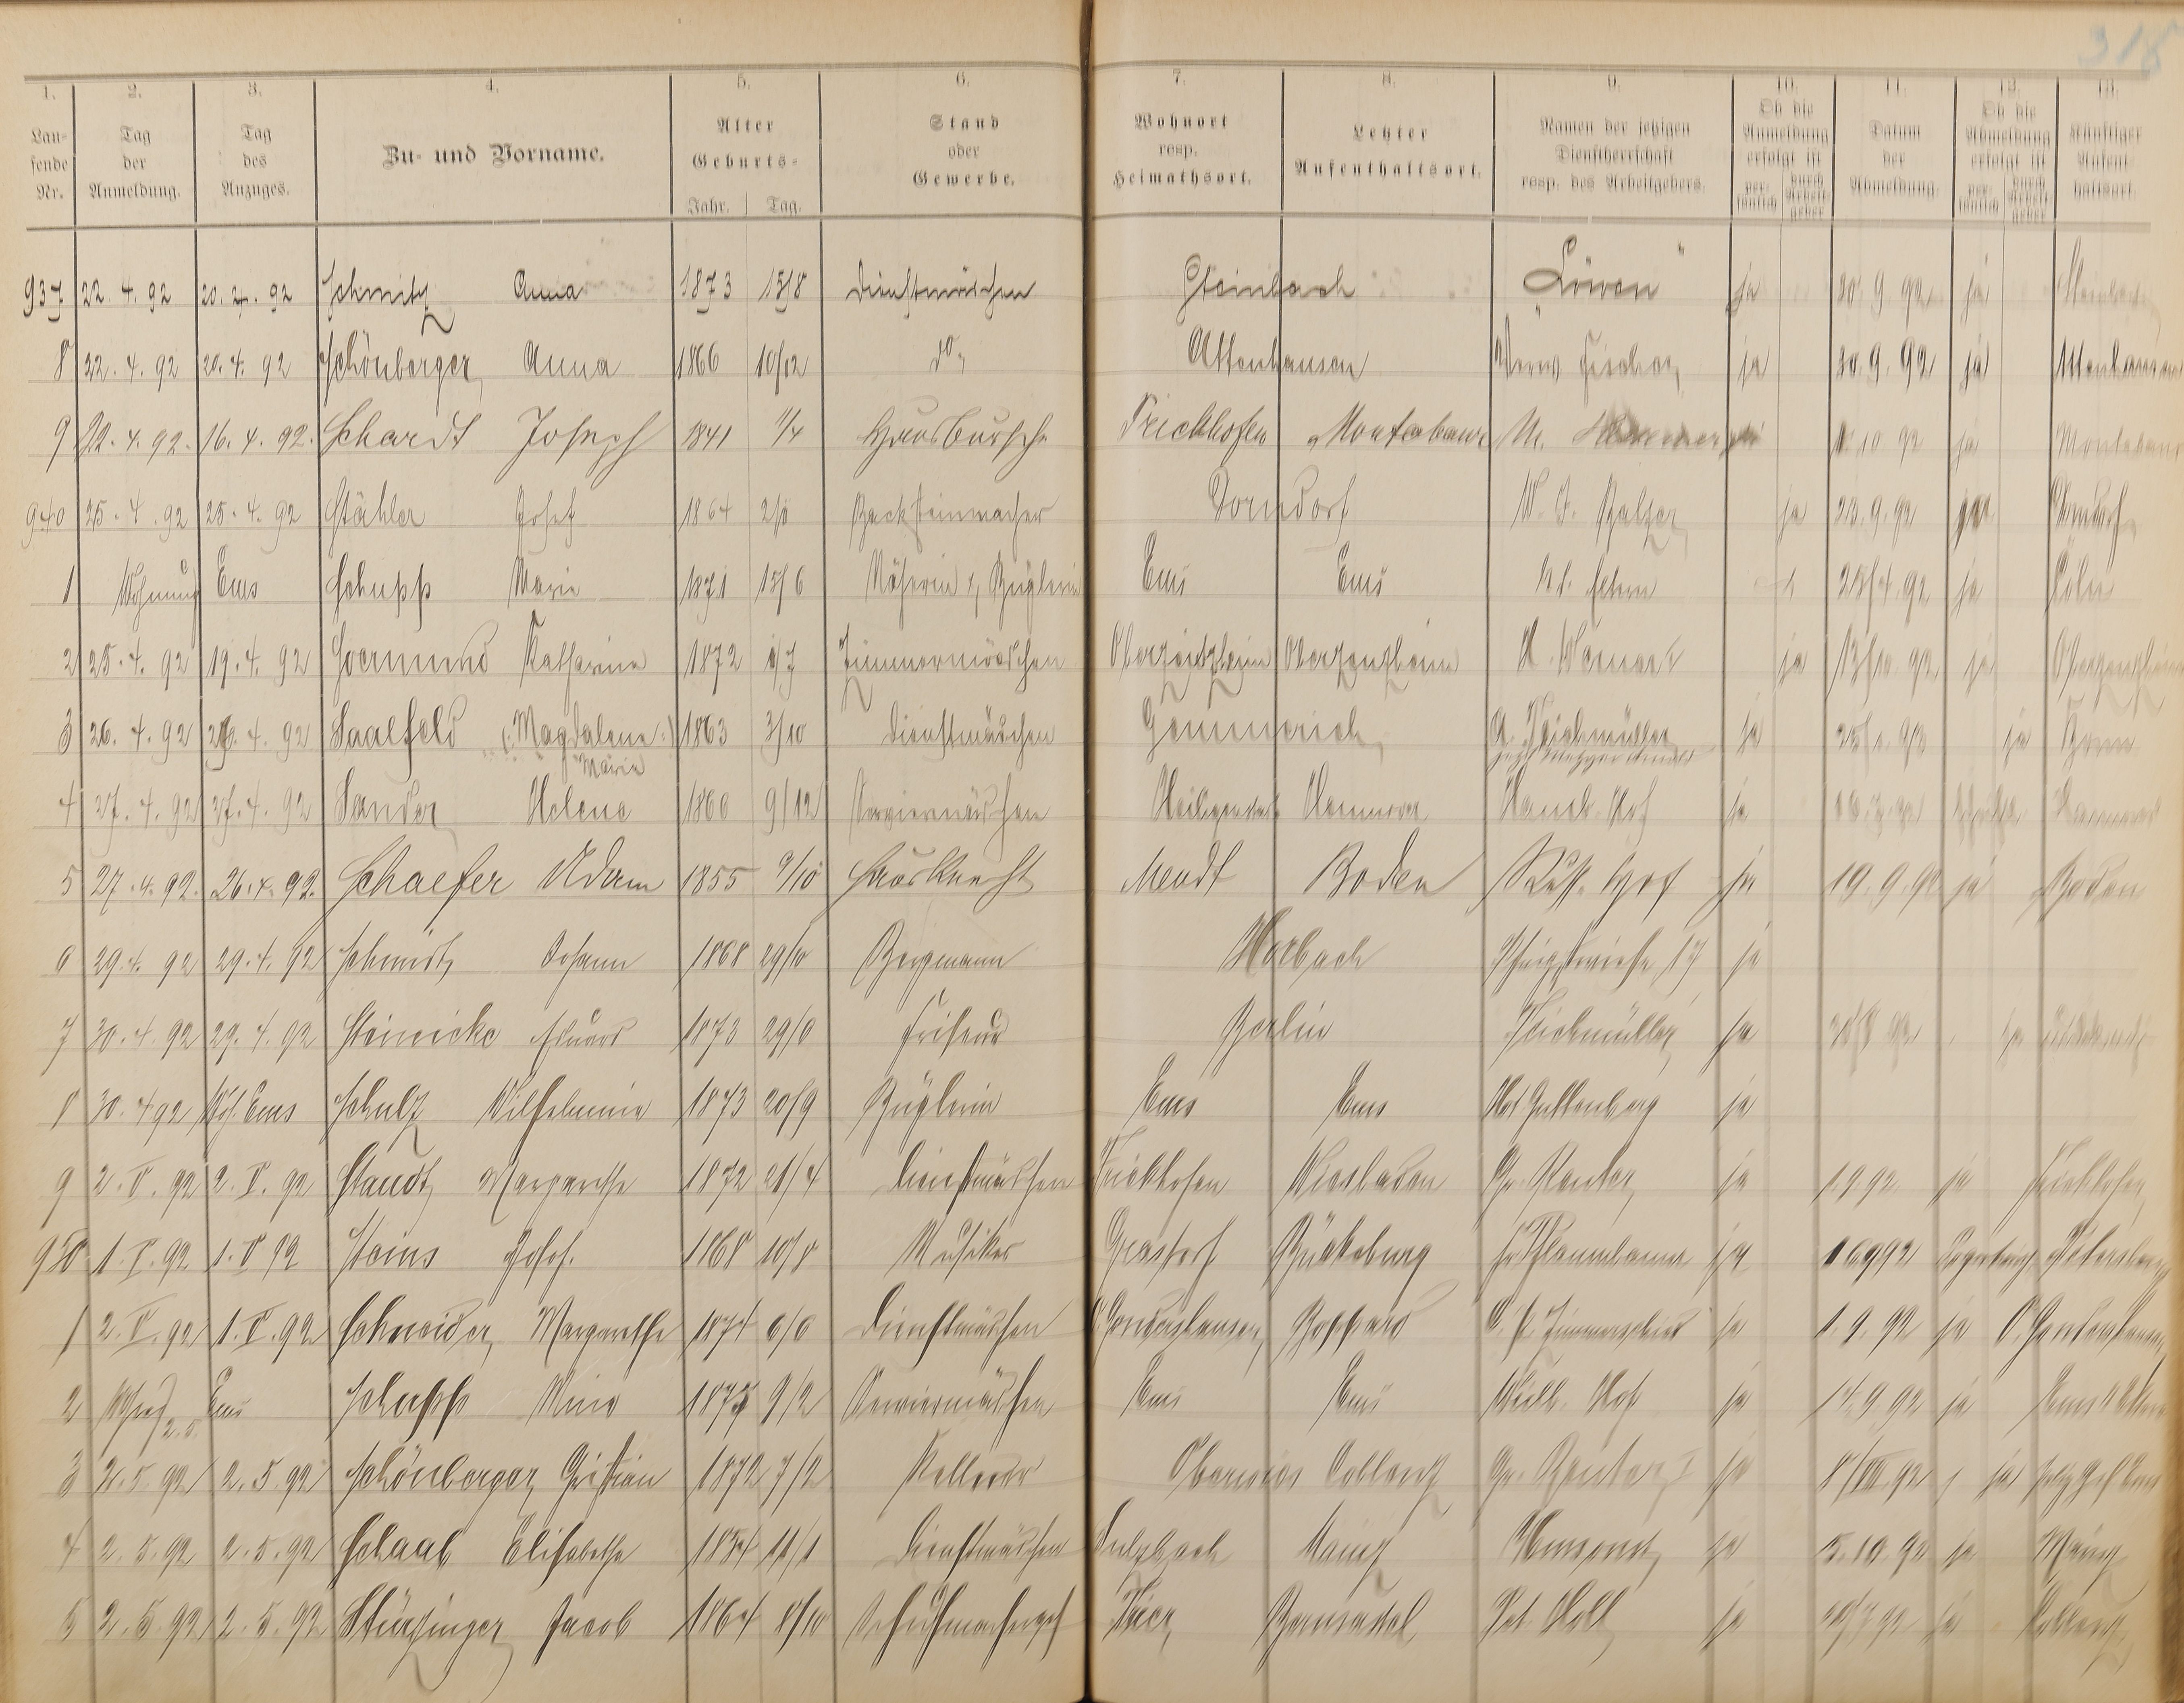 315
1. 2. 3. 4. 5. 6. 7. 8. 9. 10. 11. 12. 13.
Lau-fende Nr. Tag der Anmeldung. Tag des Anzuges. Zu- und Vorname. Alter Geburts- Jahr. Tag. Stand oder Gewerbe. Wohnort resp. Heimathsort. Letzter Aufenthaltsort. Namen der jetzigen Dienstherrschaft resp. des Arbeitgebers. Ob die Anmeldung erfolgt ist per-sönlich durch Arbeit-geber Datum der Abmeldung. Ob die Abmeldung erfolgt ist per-sönlich durch Arbeit-geber Künftiger Aufent-haltsort.
937 22. 4. 92 20. 4. 92 Schmitz Anna 1873 15/8 Dienstmädchen Steinbach "Löwen" ja 30. 9. 92 ja Steinbach
8 22. 4. 92 20. 4. 92 Schönberger Anna 1866 10/12 do. Attenhausen Wwe Fischer ja 30. 9. 92 ja Attenhausen
9 22. 4. 92. 16. 4. 92. Schardt Joseph 1841 1/4 Hausbursche Frickhofen Montabaur 1. 10 92 ja Montabaur
940 25. 4. 92 25. 4. 92 Stähler Josef 1864 2/8 Backsteinmacher Dorndorf W. J. Balzer ja 23. 9. 92 ja Dorndorf
1 Wohnung Ems Schupp Marie 1871 15/6 Näherin & Büglerin Ems Ems 28/4. 92 ja Cöln
2 25. 4. 92 19. 4. 92 Katharina 1872 Zimmermädchen Oberzeuzheim Oberzeuzheim H. Werner ja 13/10. 92 ja Oberzeuzheim
3 26. 4. 92 4. 92 Saalfeld (:Magdalena:) 1863 3/10 Dienstmädchen Gemmerich A. Teichmüller ja 25/1. 93 ja Bonn
Marie
4 27. 4. 92 27. 4. 92 Sander Helene 1866 9/12 Serviermädchen Hannover Hof ja Hannover
5 27. 4. 92. 26. 4. 92. Schaefer Adam 1855 9/10 Hausknecht Meudt Boden Russ. Hof ja 19. 9. 92 ja Boden
6 29. 4. 92 29. 4. 92 Schmidt Johann 1868 29/10 Bergmann Horbach Pfingstwiese 17 ja
7 30. 4. 92 29. 4. 92 Steinicke Eduard 1873 29/6 Friseur Berlin Teichmüller ja ja
8 30. 4 92 Ems Schulz Wilhelmine 1873 20/9 Büglerin Ems Ems Guttenberg ja
9 2. V. 92 2. V. 92 Staudt Margarethe 1872 21/4 Dienstmädchen Frickhofen Wiesbaden ja 1. 9 92 ja Frickhofen
950 1. V. 92 1. V 92 Steins Josef. 1868 10/8 Musiker Grasdorf Bückeburg Fr. Flammbaum ja 16 9 92 Petersburg
1 2. V. 92 1. V. 92 Schneider Margarethe 1874 6/6 Dienstmädchen Gondershausen Boppard ja 1. 9. 92 ja O. Gondershausen
2 Ems Schupp Mina 1875 9/2 Serviermädchen Ems Ems Hof ja 14. 9 92 ja Ems
3 2. 5. 92 2. 5. 92 Schönberger Christian 1872 7/2 Kellner Oberwies Coblenz ja 8/VII. 92 ja
4 2. 5. 92 2. 5. 92 Schaab Elisabethe 1854 11/1 Dienstmädchen Sulzbach Mainz ja 5. 10. 92 ja Mainz
5 2. 5. 92 2. 5. 92 Stürzinger Jacob 1864 8/10 Trier Berncastel Pet. Holl ja 10/7 92 ja Coblenz